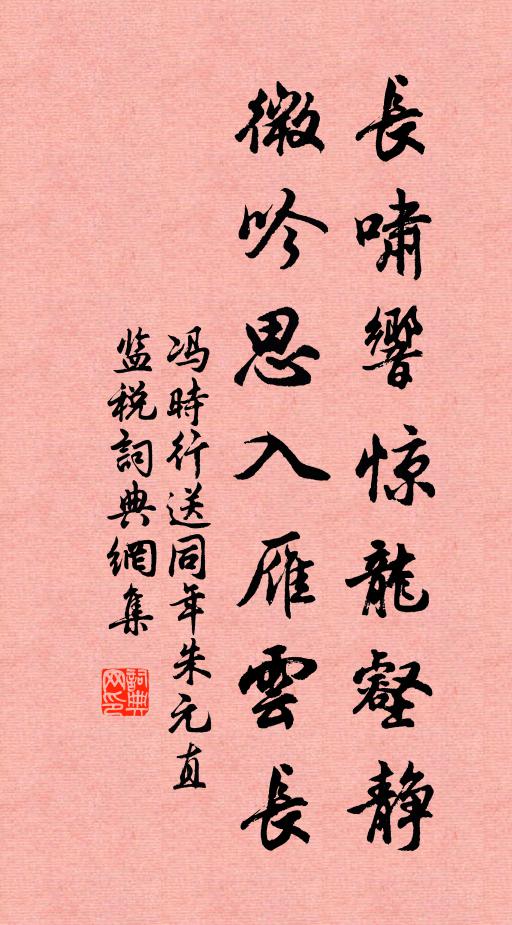 長嘯響惊龍壑静
微吟思入雁雲長
冯時行送同年朱元直
监税詞典網集
詞典网印